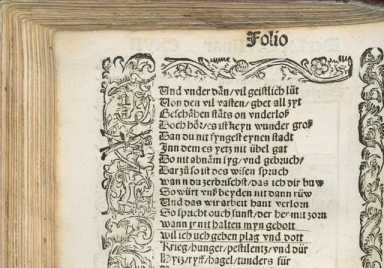 Folio
Und vnder dañ/vil geistlich lüt
Von den vil vasten/gbet all zyt
Beschähen stäts on vnderloß
Doch hör/es ist keyn wunder groß
Dan du nit syngest eynen stadt
Inn dem es yetz nit übel gat
Do nit abnäm syg/vnd gebruch/
Dar zů so ist des wisen spruch
wann du zerbrichst/das ich dir buw
So würt vnß beyden nit dann rüw
Und das wir arbeit hant verlorn
So spricht ouch sunst/der her mit zorn
wann jr nit halten myn gebott
wil ich uch geben plag vnd dott
Krieg/hunger/pestilentz/vnd dür
Hytz/ryff/hagel/tunders für